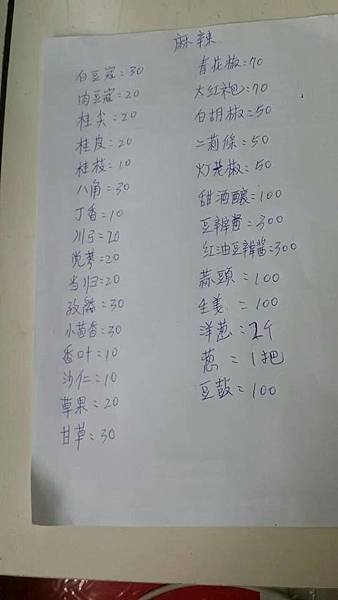 麻辣
白豆寇:30
肉豆寇:20
桂尖:20
桂皮=20
桂枝=10
八角=30
丁香=10
川弓=10
党蔘=20
当归=20
孜然=30
小茴香:30
香叶=10
沙仁=10
草果=20
甘草=30
青花椒=70
大红袍=70
白胡椒=50
二莉條=50
灯茏椒=50
甜酒釀=100
豆瓣醬=300
紅油豆瓣醬=300
蒜頭=100
生姜=100
洋蔥=2个
蔥=1把
豆鼓=100